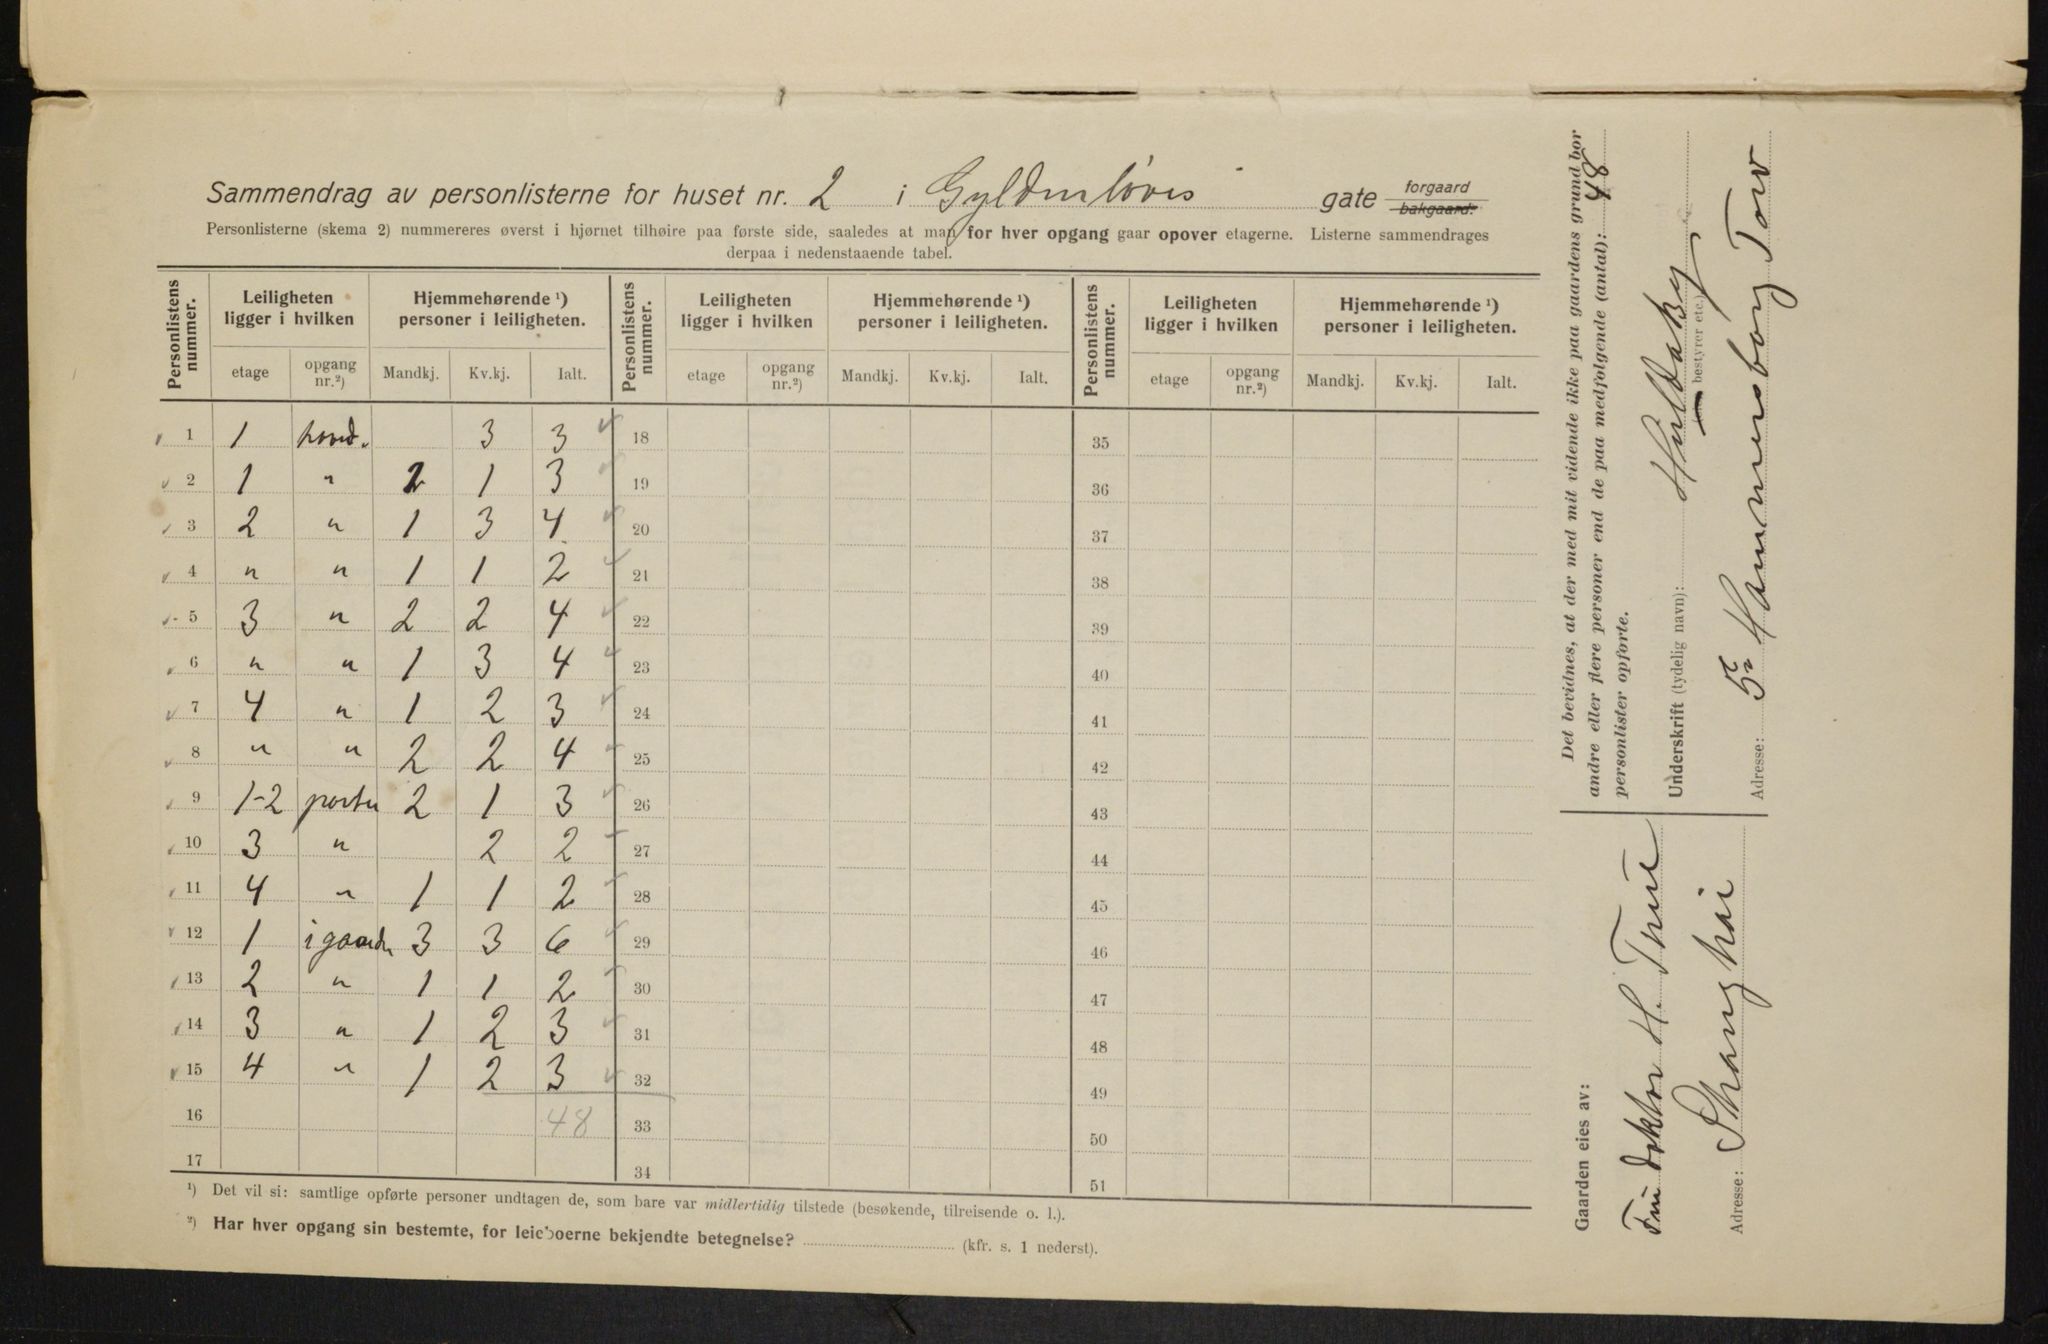 Sammendrag av personlisterne for huset nr. 2 i Gyldenløves gate forgaard bakgaard.
Personlisterne (skema 2) nummereres øverst i hjørnet tilhøire paa første side, saaledes at man for hver opgang gaar opover etagerne. Listerne sammendrages
derpaa i nedenstaaende tabel.
Personlistens nummer. Leiligheten ligger i hvilken Hjemmehørende ¹) personer i leiligheten. Personlistens nummer. Leiligheten ligger i hvilken Hjemmehørende ¹) personer i leiligheten. Personlistens nummer. Leiligheten ligger i hvilken Hjemmehørende ¹) personer i leiligheten.
etage opgang nr.²) Mandkj. Kv.kj. Ialt. etage opgang nr.²) Mandkj. Kv.kj. Ialt. etage opgang nr.²) Mandkj. Kv.kj. Ialt.
1 1 hoved. 3 3 18 35
2 1 " 2 1 3 19 36
3 2 " 1 3 4 20 37
4 " " 1 1 2 21 38
5 3 " 2 2 4 22 39
6 " " 1 3 4 23 40
7 4 " 1 2 3 24 41
8 " " 2 2 4 25 42
9 1-2 2 1 3 26 43
10 3 " 2 2 27 44
11 4 " 1 1 2 28 45
12 1 i gaarden 3 3 6 29 46
13 2 " 1 1 2 30 47
14 3 " 1 2 3 31 48
15 4 " 1 2 3 32 49
16 48 33 50
17 34 51
¹) Det vil si: samtlige opførte personer undtagen de, som bare var midlertidig tilstede (besøkende, tilreisende o. l.).
²) Har hver opgang sin bestemte, for leieboerne bekjendte betegnelse? (kfr. s. 1 nederst).
Det bevidnes, at der med mit vidende ikke paa gaardens grund bor
andre eller flere personer end de paa medfølgende (antal): 48
personlister opførte.
Underskrift (tydelig navn):
bestyrer etc.)
Adresse: Torv
Gaarden eies av:
Fru doktor H.
Adresse: Shanghai